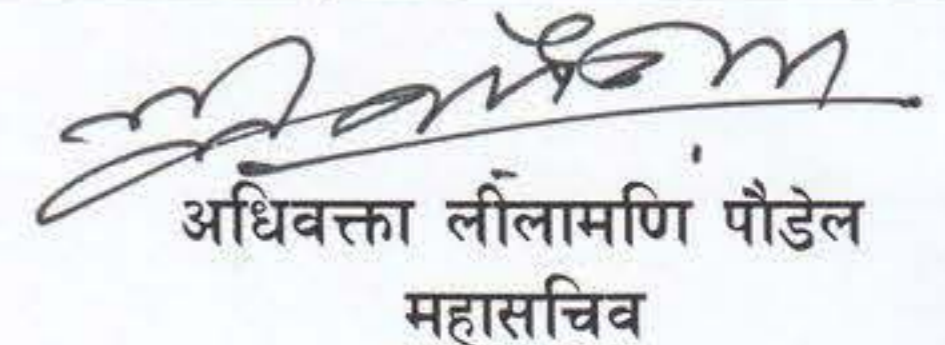 अधिवक्ता लीलामणि पौडेल
महासचिव